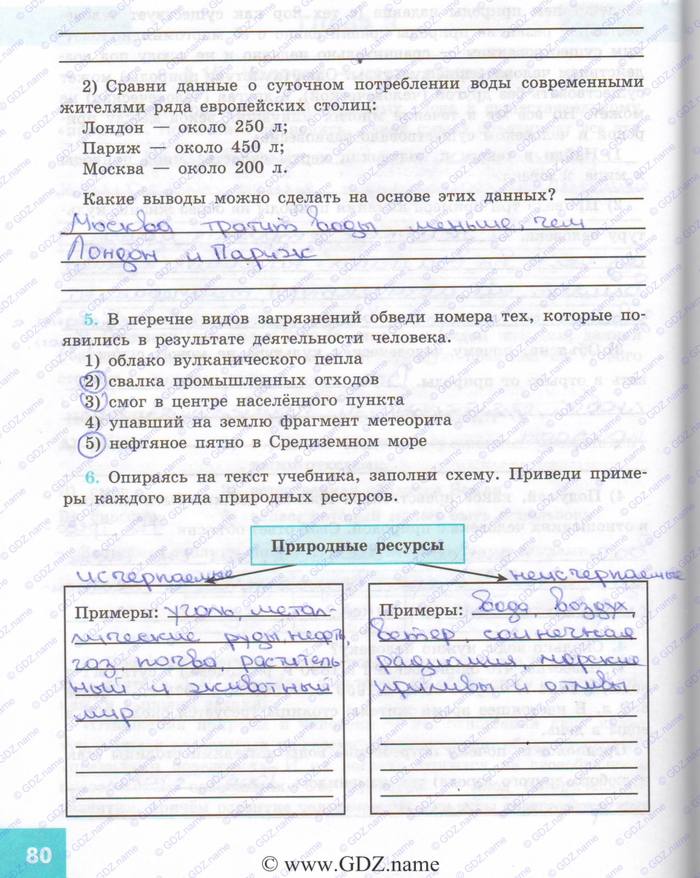 2) Сравни данные о суточном потреблении воды современными
жителями ряда европейских столиц:
Лондон — около 250 л;
Париж — около 450 л;
Москва — около 200 л.
Какие выводы можно сделать на основе этих данных?
Москва тратит воды меньше, чем
Лондон и Париж
5. В перечне видов загрязнений обведи номера тех, которые по-
явились в результате деятельности человека.
1) облако вулканического пепла
2) свалка промышленных отходов
3) смог в центре населённого пункта
4) упавший на землю фрагмент метеорита
5) нефтяное пятно в Средиземном море
6. Опираясь на текст учебника, заполни схему. Приведи приме-
ры каждого вида природных ресурсов.
Природные ресурсы
исчерпаемые
Примеры: уголь, метал-
лические руды, нефть,
газ, почва, раститель
ный и животный
мир
неисчерпаемые
Примеры: вода, воздух,
ветер, солнечная
радиация, морские
приливы и отливы
80
© www.GDZ.name